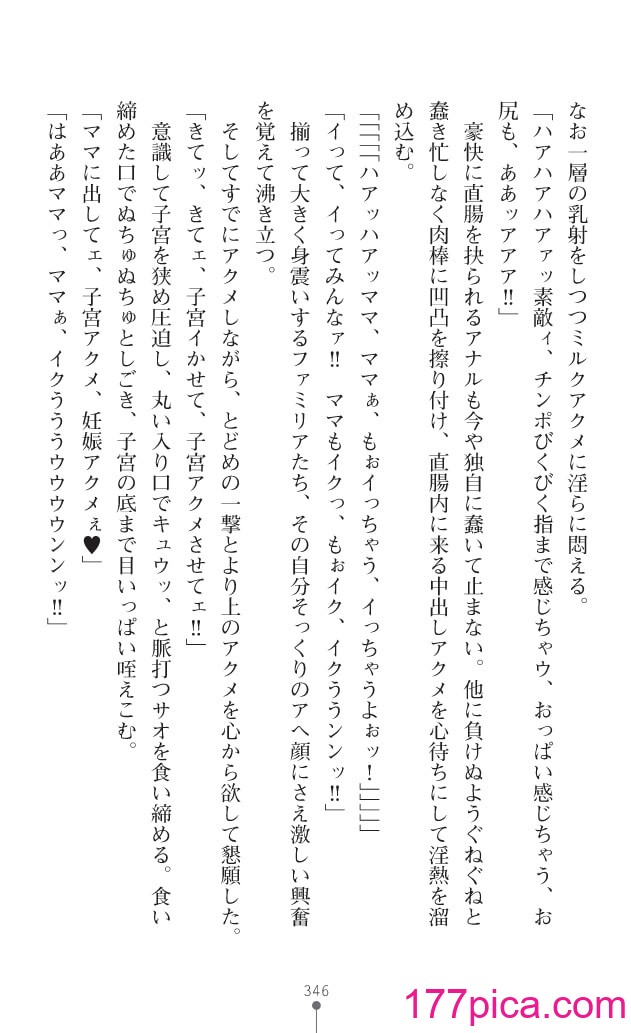 なお一層の乳射をしつつミルクアクメに淫らに悶える。
「ハアハアハアァッ素敵ィ、チンポびくびく指まで感じちゃウ、おっぱい感じちゃう、お
尻も、ああッアアア!!」
　豪快に直腸を抉られるアナルも今や独自に蠢いて止まない。他に負けぬようぐねぐねと
蠢き忙しなく肉棒に凹凸を擦り付け、直腸内に来る中出しアクメを心待ちにして淫熱を溜
め込む。
「「「「ハアッハアッママ、ママぁ、もぉイっちゃう、イっちゃうよぉッ!」」」」
「イって、イってみんなァ!!　ママもイクっ、もぉイク、イクううンンッ!!」
　揃って大きく身震いするファミリアたち、その自分そっくりのアヘ顔にさえ激しい興奮
を覚えて沸き立つ。
　そしてすでにアクメしながら、とどめの一撃とより上のアクメを心から欲して懇願した。
「きてッ、きてェ、子宮イかせて、子宮アクメさせてェ!!」
　意識して子宮を狭め圧迫し、丸い入り口でキュウッ、と脈打つサオを食い締める。食い
締めた口でぬちゅぬちゅとしごき、子宮の底まで目いっぱい咥えこむ。
「ママに出してェ、子宮アクメ、妊娠アクメぇ♥」
「はああママっ、ママぁ、イクうううウウウウンンッ!!」
346
177pica.com